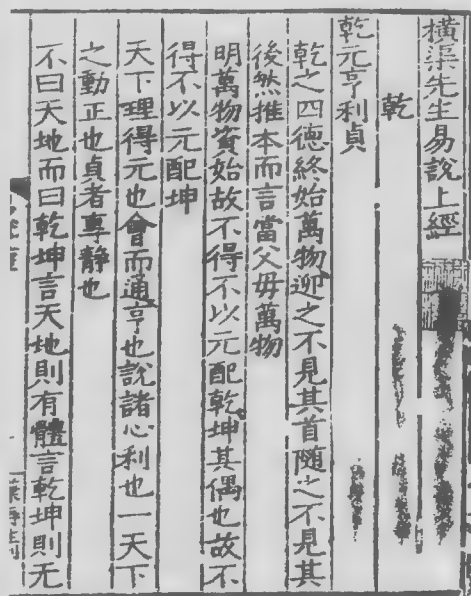 橫渠先生易說上經
乾
乾元亨利貞
乾之四德終始萬物迎之不見其首隨之不見其
後然推本而言當父母萬物
明萬物資始故不得不以元配乾坤其偶也故不
得不以元配坤
天下理得元也會而通亨也說諸心利也一天下
之動正也貞者專靜也
不曰天地而曰乾坤言天地則有體言乾坤則无